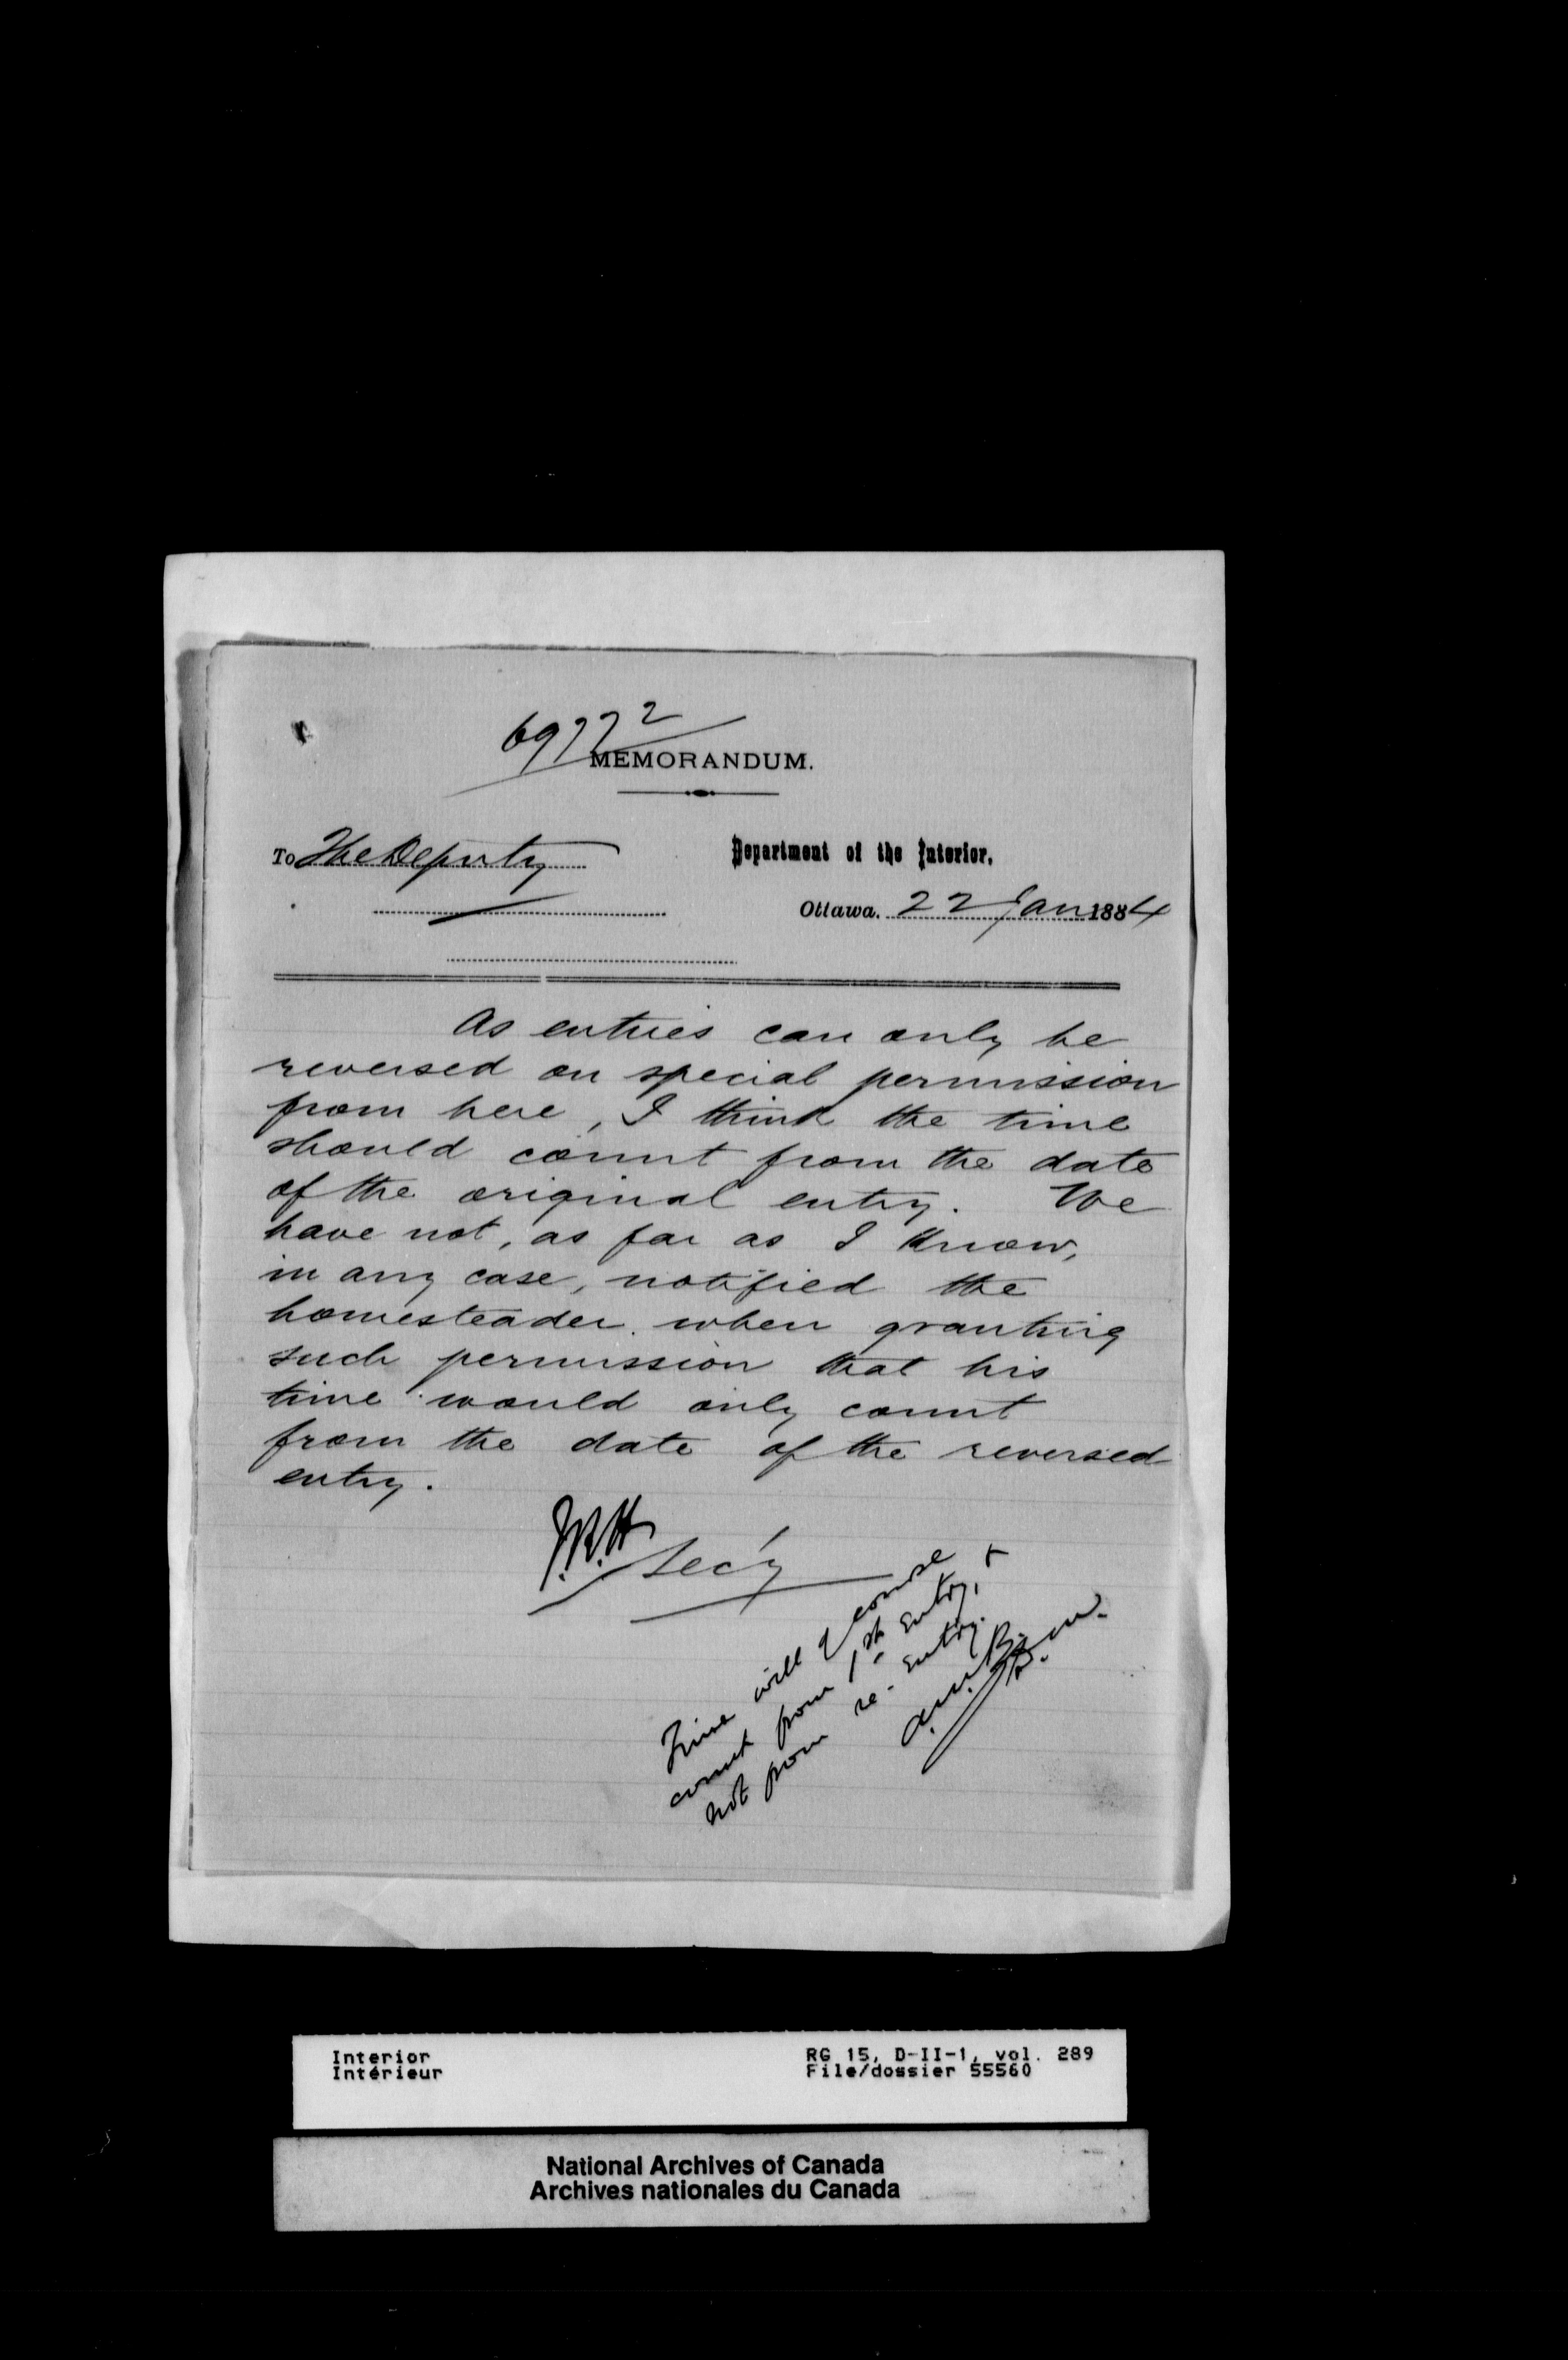 69772
MEMORANDUM.
To The Deputy
Department of the Interior,
Ottawa. 22 Jan 1884
As entries can only be
reversed on special permission
from here, I think the time
should count from the date
of the original entry. We
have not, as far as I know,
in any case, notified the
homesteader when granting
such permission that his
time would only count
from the date of the reversed
entry.
J.R.H
Sec'y
Time will of course
count from 1st Entry, &
not from re-Entry.
A.M.B.
D.M.
Interior
Intérieur
RG 15, D-II-1, vol. 289
File/dossier 55560
National Archives of Canada
Archives nationales du Canada